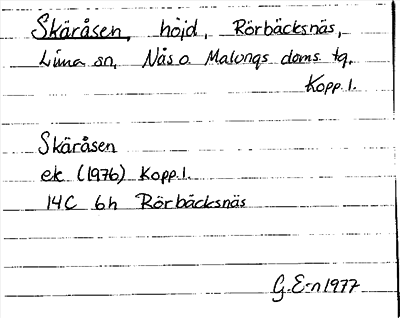 Skäråsen, höjd, Rörbäcksnäs,
Lima sn, Nås o. Malungs doms. tg,
Kopp. l.
Skäråsen
ek (1976) Kopp. l.
14C 6h Rörbäcksnäs
G. E-n 1977